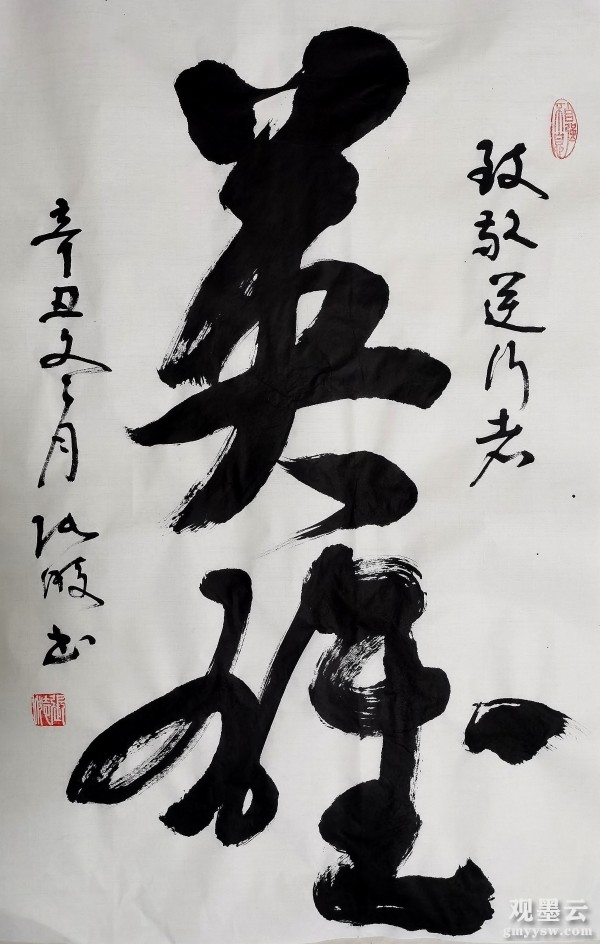 自强不息
致敬逆行者
英雄
辛丑冬月 张 书
观墨云
gmyysw.com